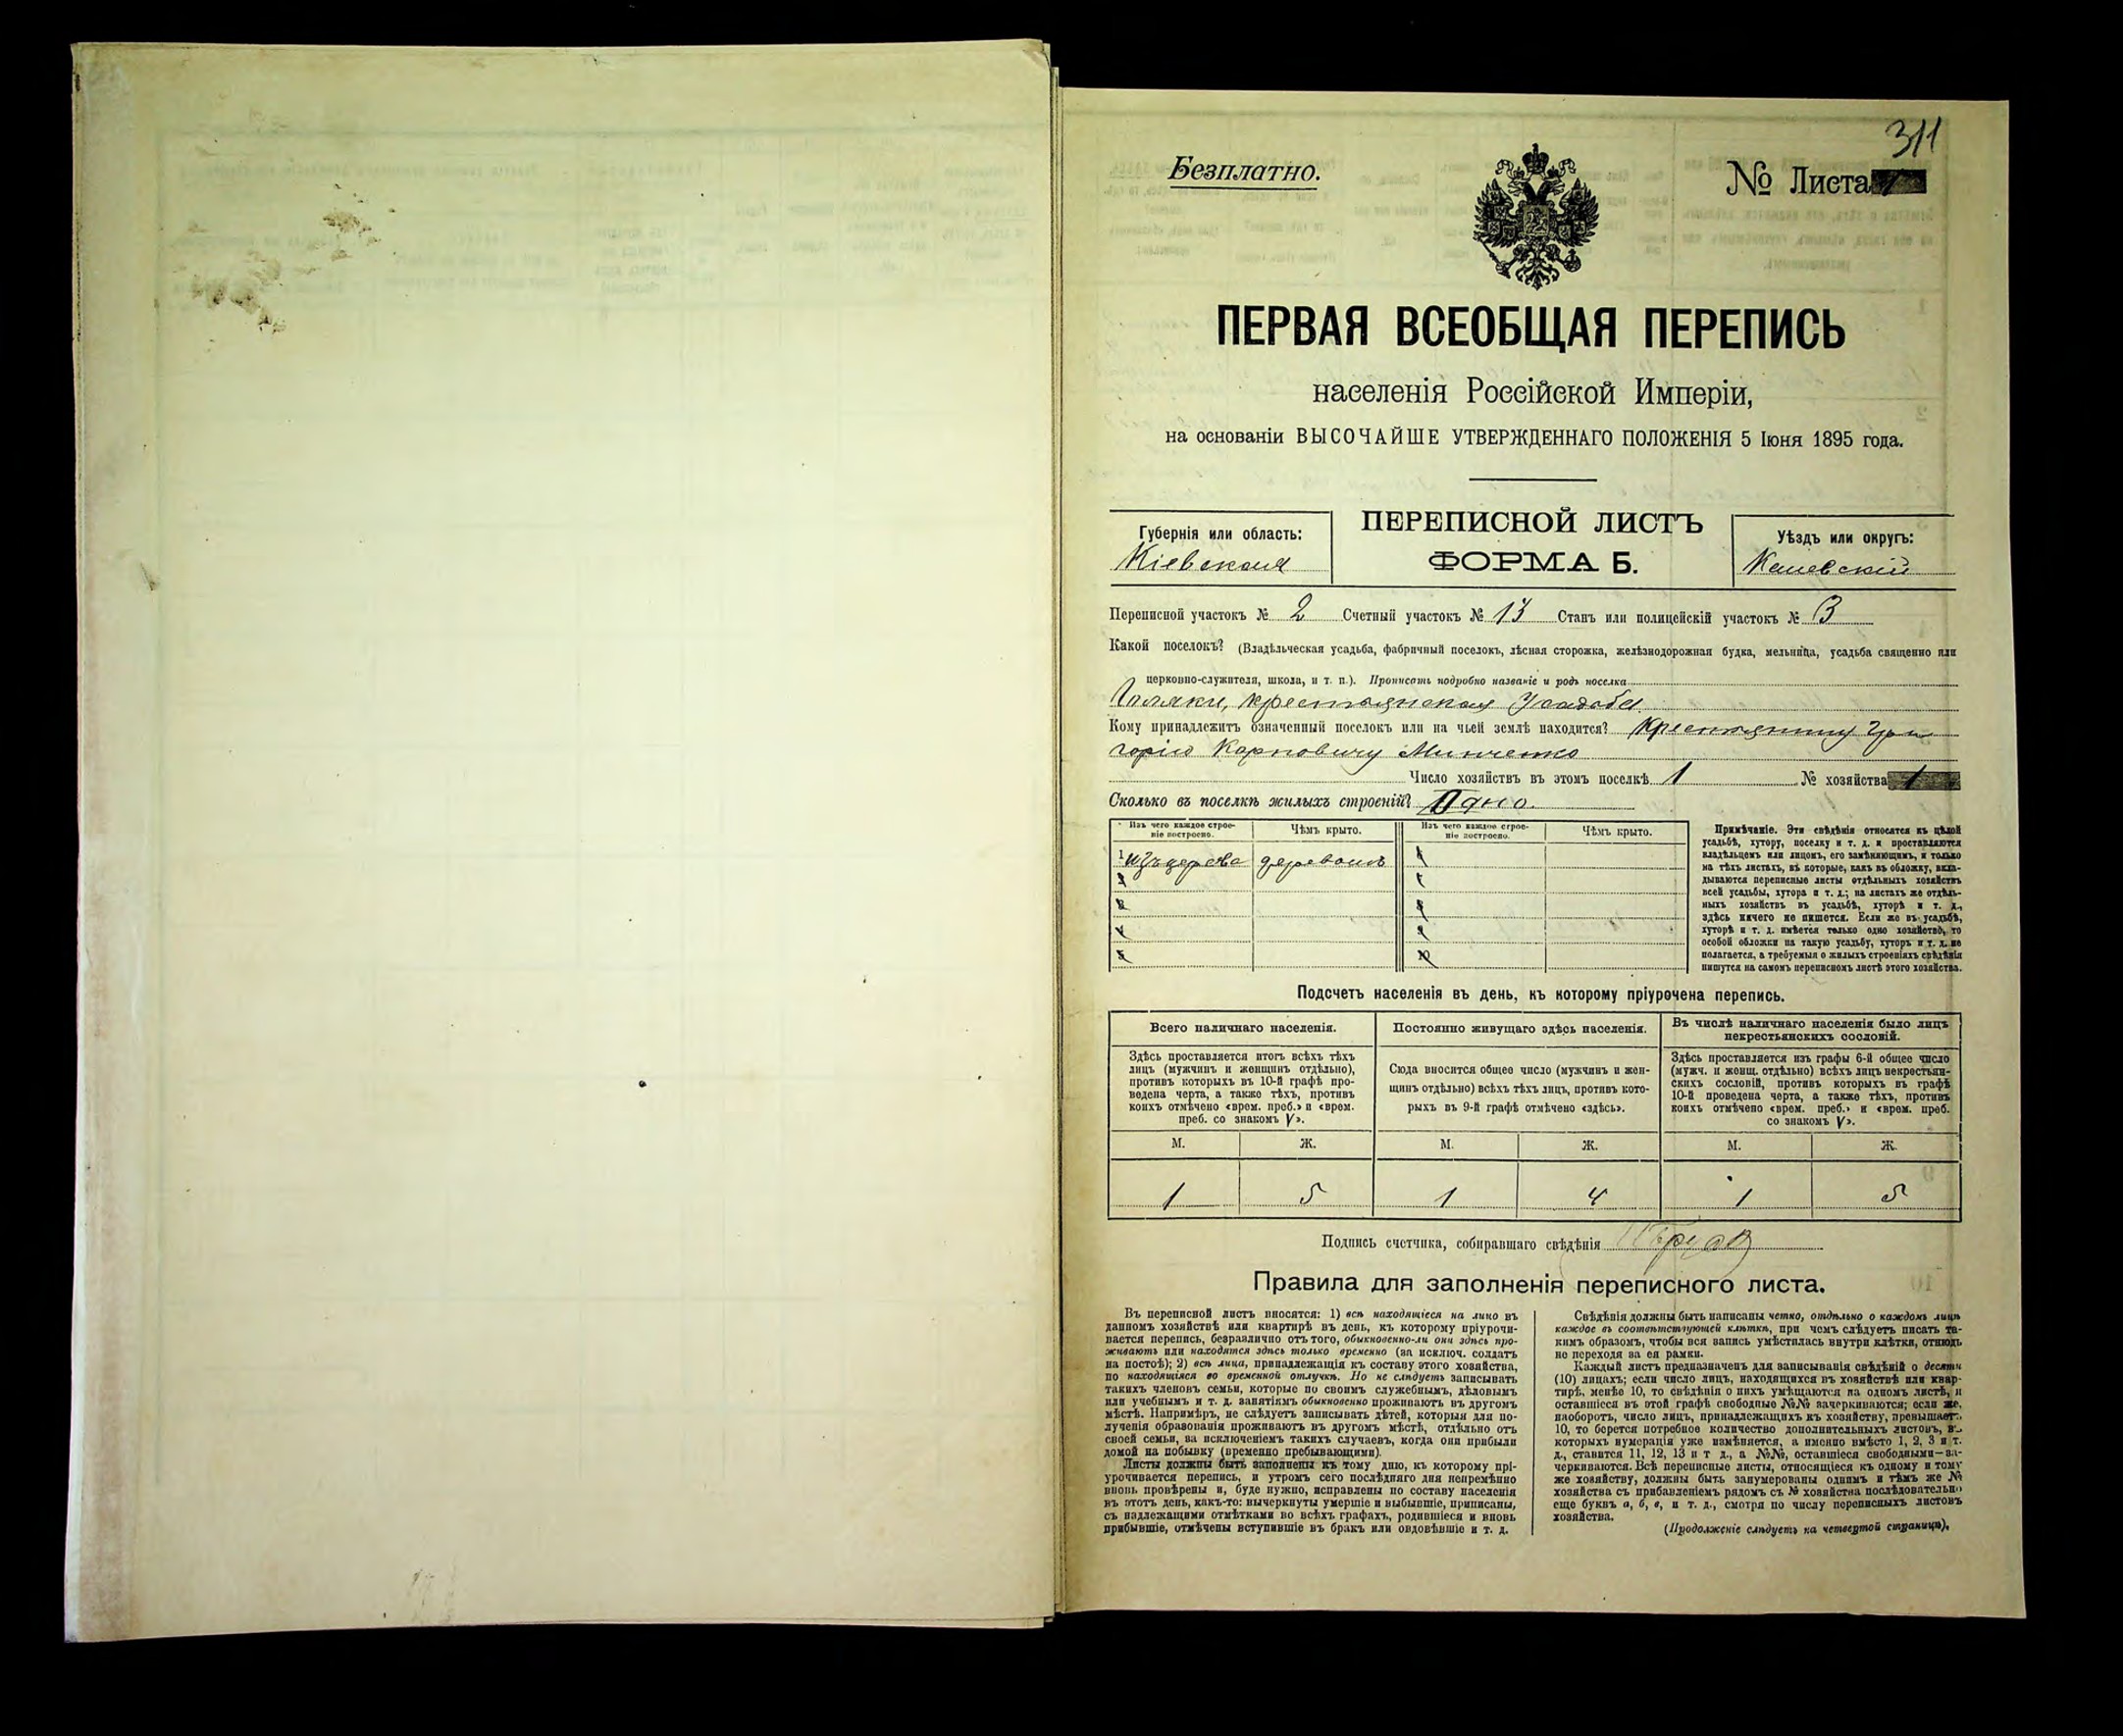 311
Безплатно.
№ Листа 1
ПЕРВАЯ ВСЕОБЩАЯ ПЕРЕПИСЬ
населенія Россійской Имперіи,
на основаніи ВЫСОЧАЙШЕ УТВЕРЖДЕННАГО ПОЛОЖЕНІЯ 5 Іюня 1895 года.
Губернія или область:
Кіевская
ПЕРЕПИСНОЙ ЛИСТЪ
ФОРМА Б.
Уѣздъ или округъ:
Каневскій
Переписной участокъ № 2 Счетный участокъ № 13 Станъ или полицейскій участокъ № 3
Какой поселокъ? (Владѣльческая усадьба, фабричный поселокъ, лѣсная сторожка, желѣзнодорожная будка, мельница, усадьба священно или
церковно-служителя, школа, и т. п.). Прописать подробно названіе и родъ поселка
крестьянская Усадьба
Кому принадлежитъ означенный поселокъ или на чьей землѣ находится? Крестьянину Гри
горію Карповичу Минченко
Число хозяйствъ въ этомъ поселкѣ 1 № хозяйства 1
Сколько въ поселкѣ жилыхъ строеній? Одно.
Изъ чего каждое строе-
ніе построено.
Чѣмъ крыто.
Изъ чего каждое строе-
ніе построено.
Чѣмъ крыто.
1 изъ дерева деревомъ 6
2 7
3 8
4 9
5 10
Примѣчаніе. Эти свѣдѣнія относятся къ цѣлой
усадьбѣ, хутору, поселку и т. д. и проставляются
владѣльцемъ или лицомъ, его замѣняющимъ, и только
на тѣхъ листахъ, въ которые, какъ въ обложку, вкла-
дываются переписные листы отдѣльныхъ хозяйствъ
всей усадьбы, хутора и т. д.; на листахъ же отдѣль-
ныхъ хозяйствъ въ усадьбѣ, хуторѣ и т. д.,
здѣсь ничего не пишется. Если же въ усадьбѣ,
хуторѣ и т. д. имѣется только одно хозяйство, то
особой обложки на такую усадьбу, хуторъ и т. д. не
полагается, а требуемыя о жилыхъ строеніяхъ свѣдѣнія
пишутся на самомъ переписномъ листѣ этого хозяйства.
Подсчетъ населенія въ день, къ которому пріурочена перепись.
Всего наличнаго населенія.
Здѣсь проставляется итогъ всѣхъ тѣхъ
лицъ (мужчинъ и женщинъ отдѣльно),
противъ которыхъ въ 10-й графѣ про-
ведена черта, а также тѣхъ, противъ
коихъ отмѣчено «врем. преб.» и «врем.
преб. со знакомъ V».
Постоянно живущаго здѣсь населенія.
Сюда вносится общее число (мужчинъ и жен-
щинъ отдѣльно) всѣхъ тѣхъ лицъ, противъ кото-
рыхъ въ 9-й графѣ отмѣчено «здѣсь».
Въ числѣ наличнаго населенія было лицъ
некрестьянскихъ сословій.
Здѣсь проставляется изъ графы 6-й общее число
(мужч. и женщ. отдѣльно) всѣхъ лицъ некрестьян-
скихъ сословій, противъ которыхъ въ графѣ
10-й проведена черта, а также тѣхъ, противъ
коихъ отмѣчено «врем. преб.» и «врем. преб.
со знакомъ V».
М. Ж. М. Ж. М. Ж.
1 5 1 4 1 5
Подпись счетчика, собиравшаго свѣдѣнія
Правила для заполненія переписного листа.
Въ переписной листъ вносятся: 1) всѣ находящіеся на лицо въ
данномъ хозяйствѣ или квартирѣ въ день, къ которому пріурочи-
вается перепись, безразлично отъ того, обыкновенно-ли они здѣсь про-
живаютъ или находятся здѣсь только временно (за исключ. солдатъ
на постоѣ); 2) всѣ лица, принадлежащія къ составу этого хозяйства,
но находящіяся во временной отлучкѣ. Но не слѣдуетъ записывать
такихъ членовъ семьи, которые по своимъ служебнымъ, дѣловымъ
или учебнымъ и т. д. занятіямъ обыкновенно проживаютъ въ другомъ
мѣстѣ. Напримѣръ, не слѣдуетъ записывать дѣтей, которыя для по-
лученія образованія проживаютъ въ другомъ мѣстѣ, отдѣльно отъ
своей семьи, за исключеніемъ такихъ случаевъ, когда они прибыли
домой на побывку (временно пребывающими).
Листы должны быть заполнены къ тому дню, къ которому прі-
урочивается перепись, и утромъ сего послѣдняго дня непремѣнно
вновь провѣрены и, буде нужно, исправлены по составу населенія
въ этотъ день, какъ-то: вычеркнуты умершіе и выбывшіе, приписаны,
съ надлежащими отмѣтками во всѣхъ графахъ, родившіеся и вновь
прибывшіе, отмѣчены вступившіе въ бракъ или овдовѣвшіе и т. д.
Свѣдѣнія должны быть написаны четко, отдѣльно о каждомъ лицѣ
каждое въ соотвѣтствующей клѣткѣ, при чемъ слѣдуетъ писать та-
кимъ образомъ, чтобы вся запись умѣстилась внутри клѣтки, отнюдь
не переходя за ея рамки.
Каждый листъ предназначенъ для записыванія свѣдѣній о десяти
(10) лицахъ; если число лицъ, находящихся въ хозяйствѣ или квар-
тирѣ, менѣе 10, то свѣдѣнія о нихъ умѣщаются на одномъ листѣ, и
оставшіеся въ этой графѣ свободные №№ зачеркиваются; если же,
наоборотъ, число лицъ, принадлежащихъ къ хозяйству, превышаетъ
10, то берется потребное количество дополнительныхъ листовъ, въ
которыхъ нумерація уже измѣняется, а именно вмѣсто 1, 2, 3 и т.
д., ставится 11, 12, 13 и т д., а №№, оставшіеся свободными—за-
черкиваются. Всѣ переписные листы, относящіеся къ одному и тому
же хозяйству, должны быть занумерованы однимъ и тѣмъ же №
хозяйства съ прибавленіемъ рядомъ съ № хозяйства послѣдовательно
еще буквъ а, б, в, и т. д., смотря по числу переписныхъ листовъ
хозяйства.
(Продолженіе слѣдуетъ на четвертой страницѣ).